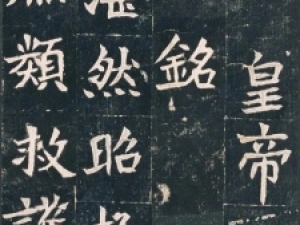 皇帝
銘
湛然昭
類救護